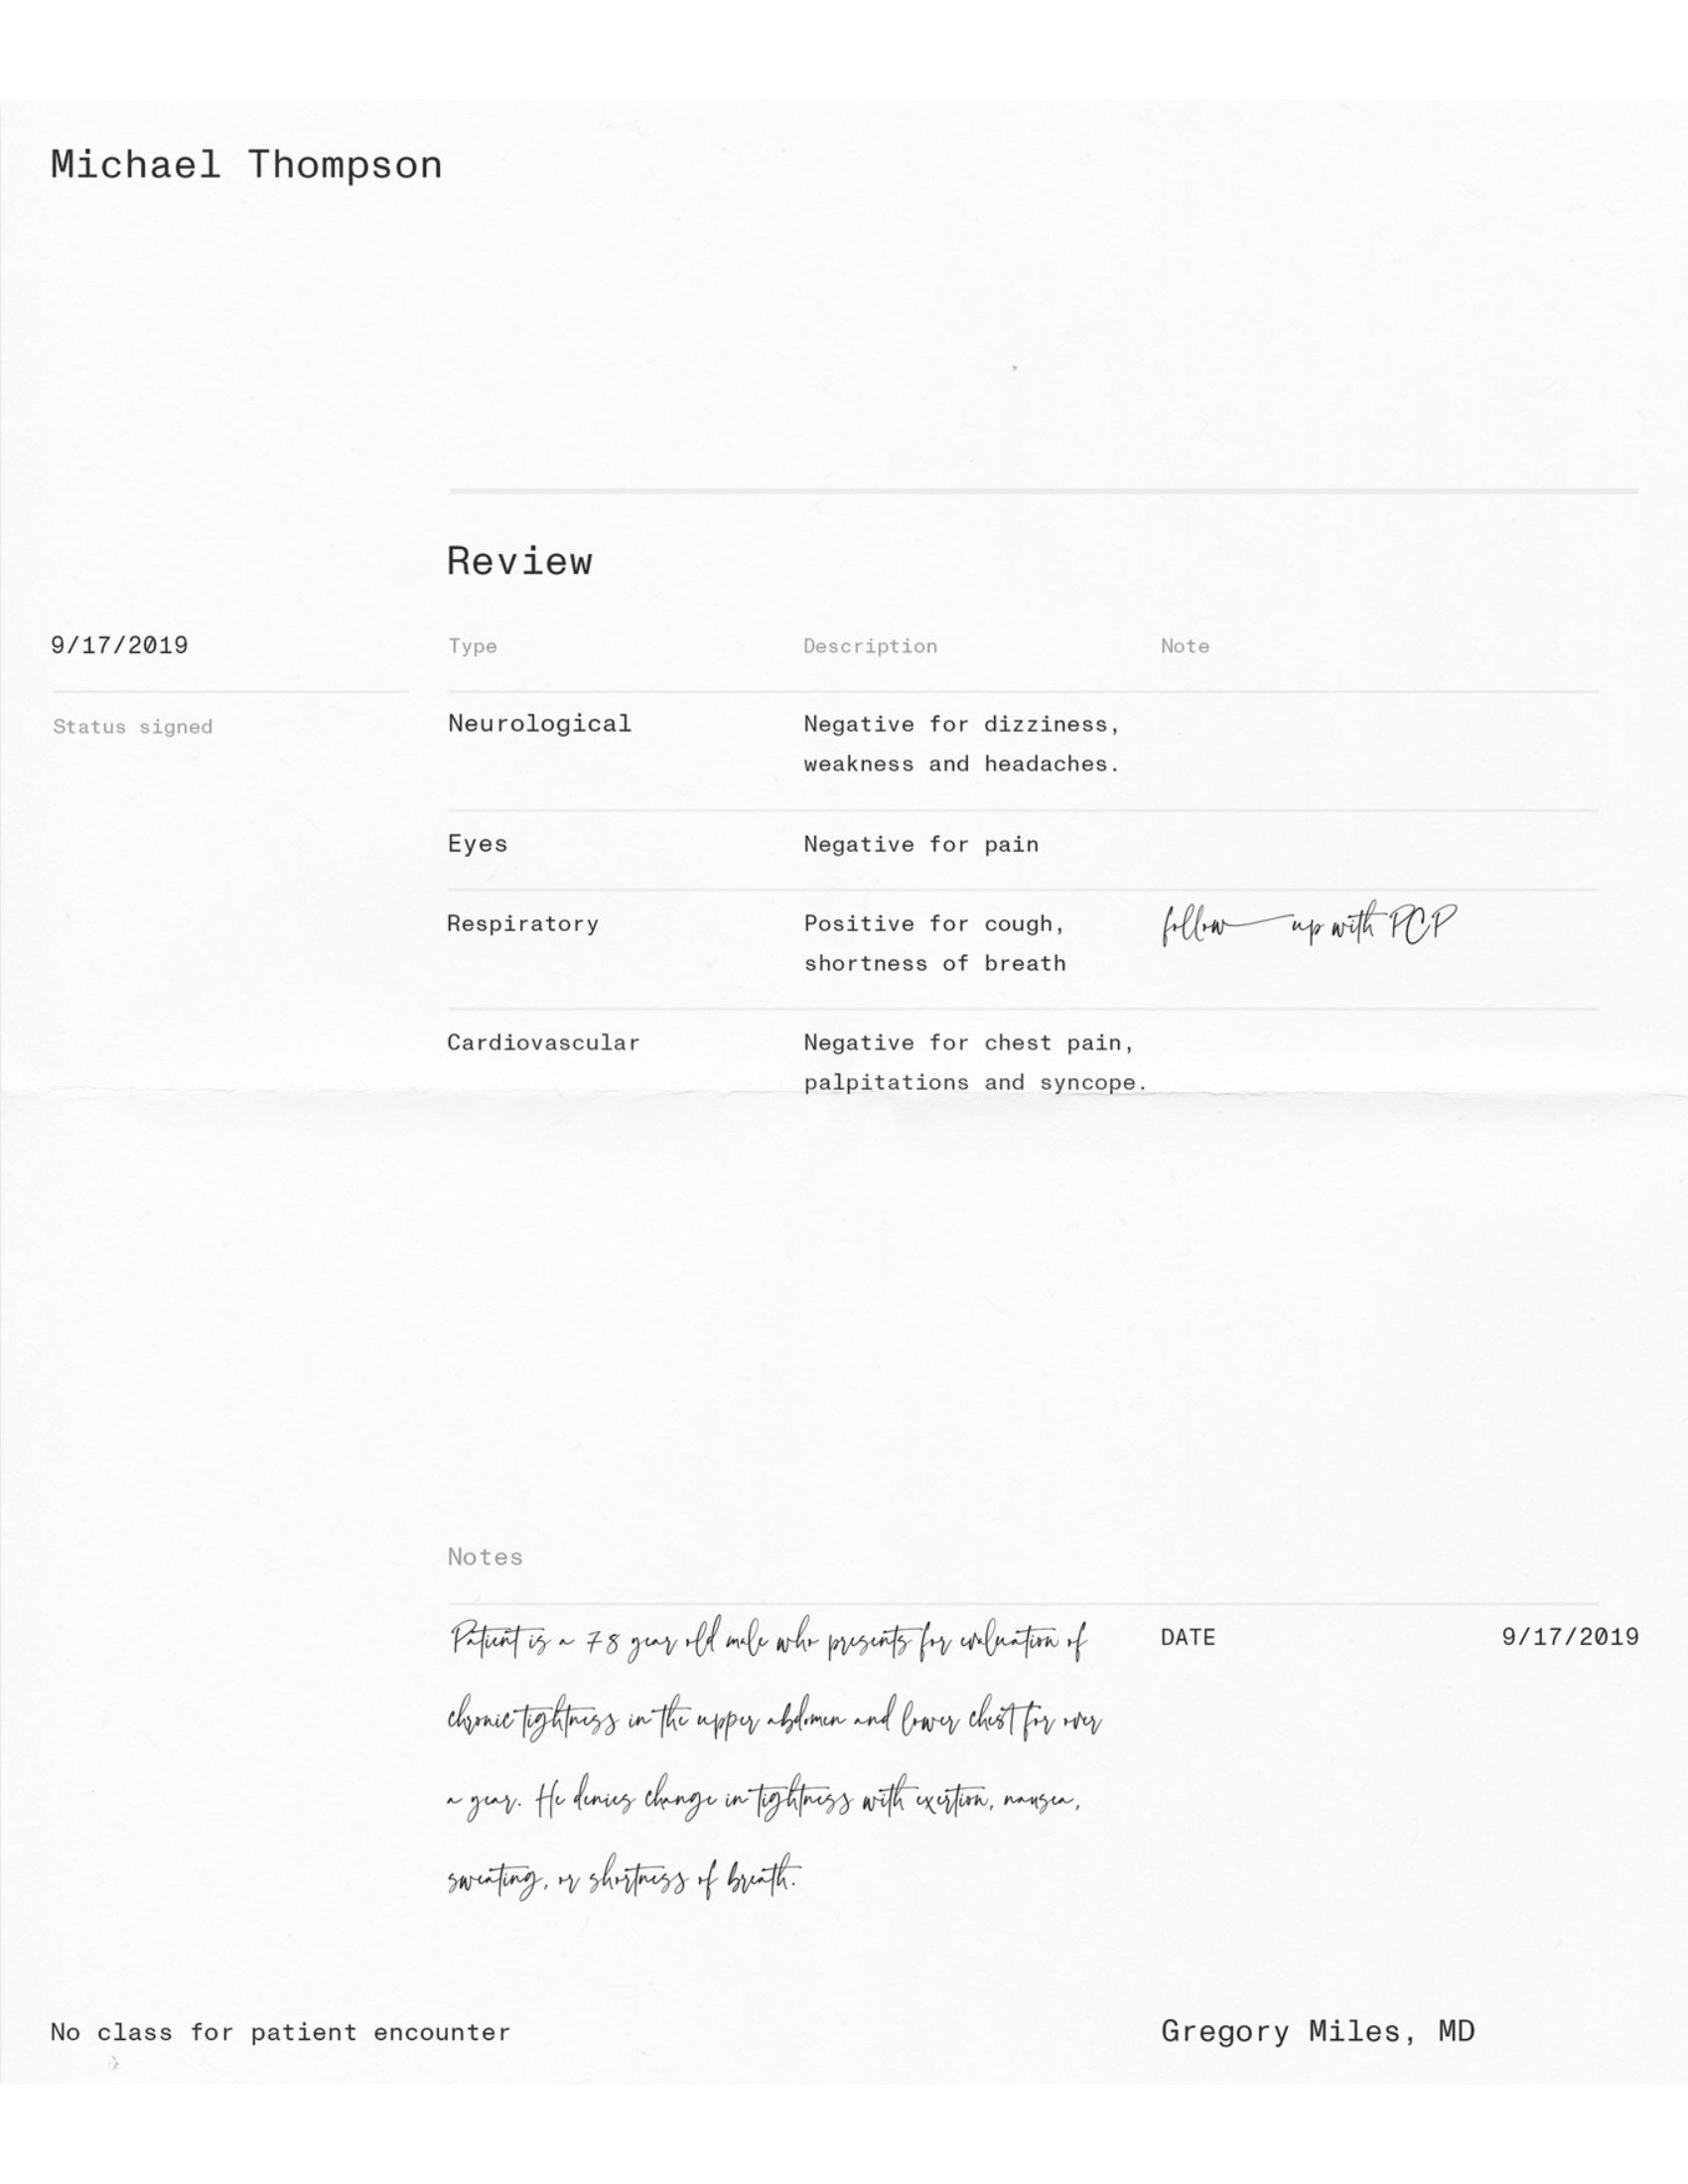 Michael Thompson
Review
9/17/2019
Type Description Note
Status signed
Neurological Negative for dizziness,
weakness and headaches.
Eyes Negative for pain
Respiratory Positive for cough, follow up with PCP
shortness of breath
Cardiovascular Negative for chest pain,
palpitations and syncope.
Notes
Patient is a 78 year old male who presents for evaluation of DATE 9/17/2019
chronic tightness in the upper abdomen and lower chest for over
a year. He denies change in tightness with exertion, nausea,
sweating, or shortness of breath.
No class for patient encounter Gregory Miles, MD